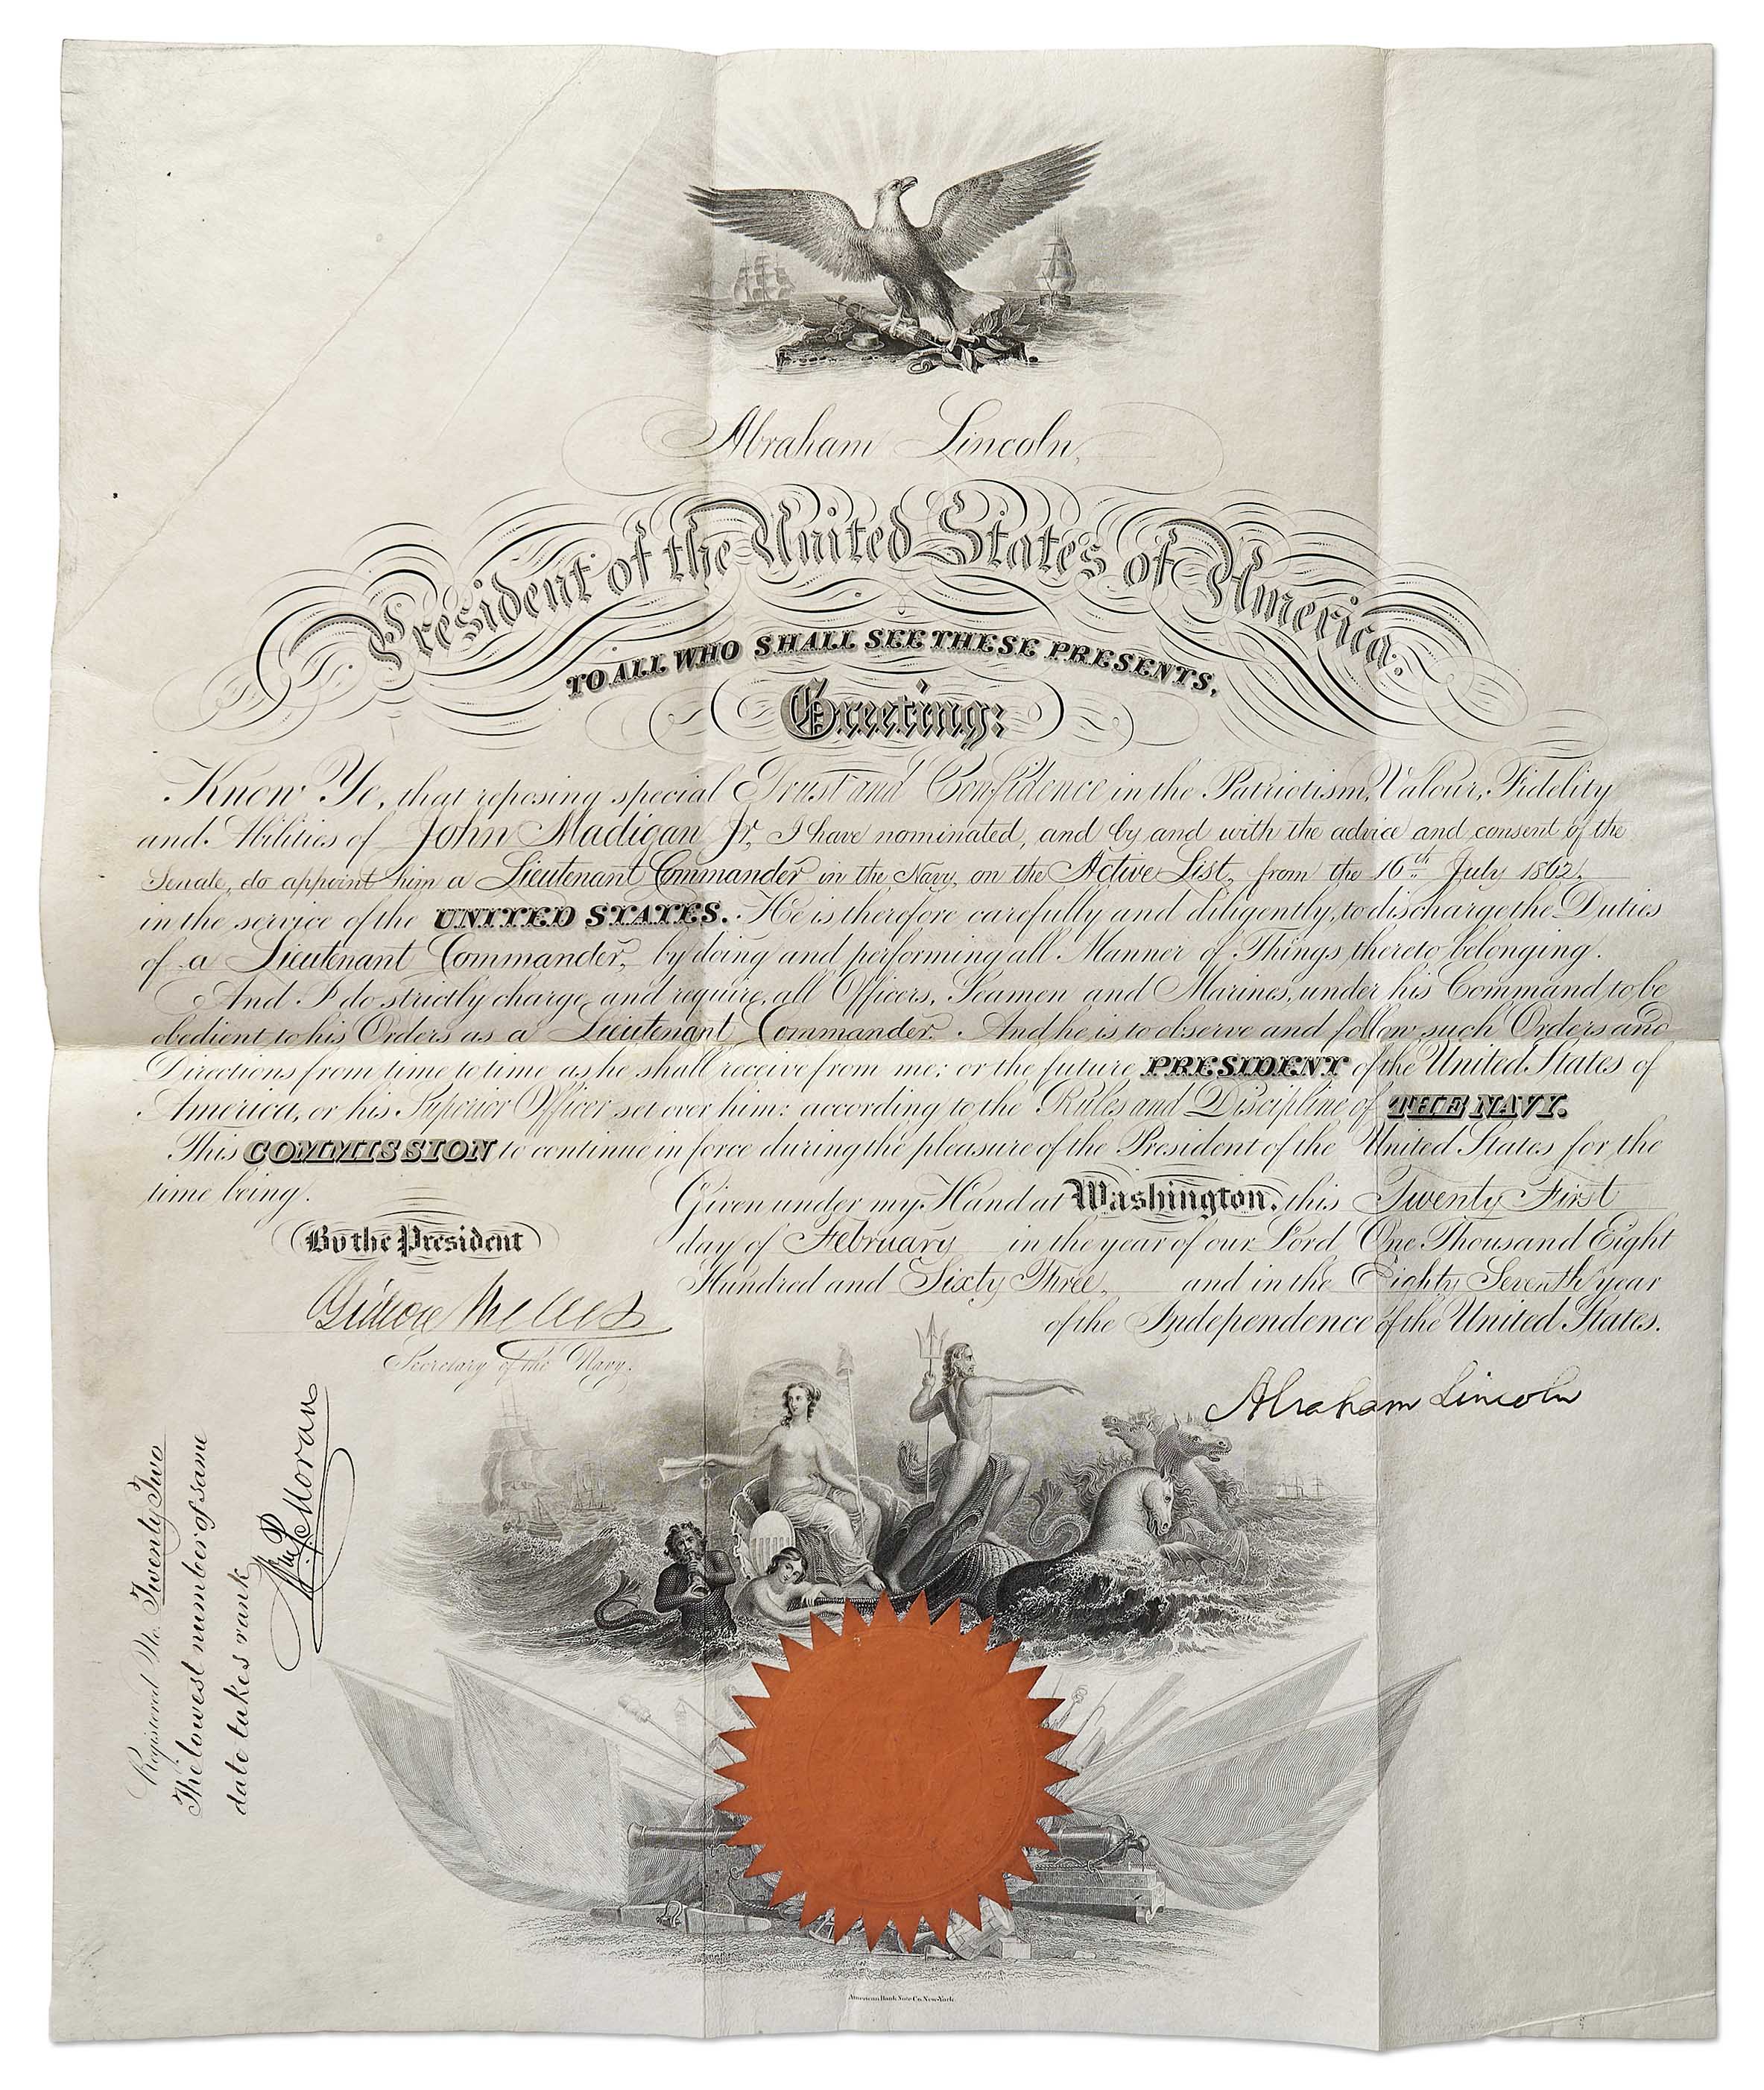 Abraham Lincoln,
President of the United States of America.
TO ALL WHO SHALL SEE THESE PRESENTS,
Greeting:
Know Ye, that reposing special Trust and Confidence in the Patriotism, Valour, Fidelity
and Abilities of John Madigan Jr, I have nominated, and by and with the advice and consent of the
Senate, do appoint him a Lieutenant Commander in the Navy, on the Active List, from the 16th July 1862,
in the service of the UNITED STATES. He is therefore carefully and diligently, to discharge the Duties
of a Lieutenant Commander, by doing and performing all Manner of Things thereto belonging.
And I do strictly charge, and require, all Officers, Seamen and Marines, under his Command to be
obedient to his Orders as a Lieutenant Commander. And he is to observe and follow such Orders and
Directions from time to time as he shall receive from me; or the future PRESIDENT of the United States of
America, or his Superior Officer set over him: according to the Rules and Discipline of THE NAVY.
This COMMISSION to continue in force during the pleasure of the President of the United States for the
time being.
Given under my Hand at Washington, this Twenty First
day of February in the year of our Lord One Thousand Eight
Hundred and Sixty Three, and in the Eighty Seventh year
of the Independence of the United States.
By the President
Gideon Welles
Secretary of the Navy.
Abraham Lincoln
Registered No. Twenty Two
The lowest number of same
date takes rank
Wm P. Moran
American Bank Note Co. New-York.